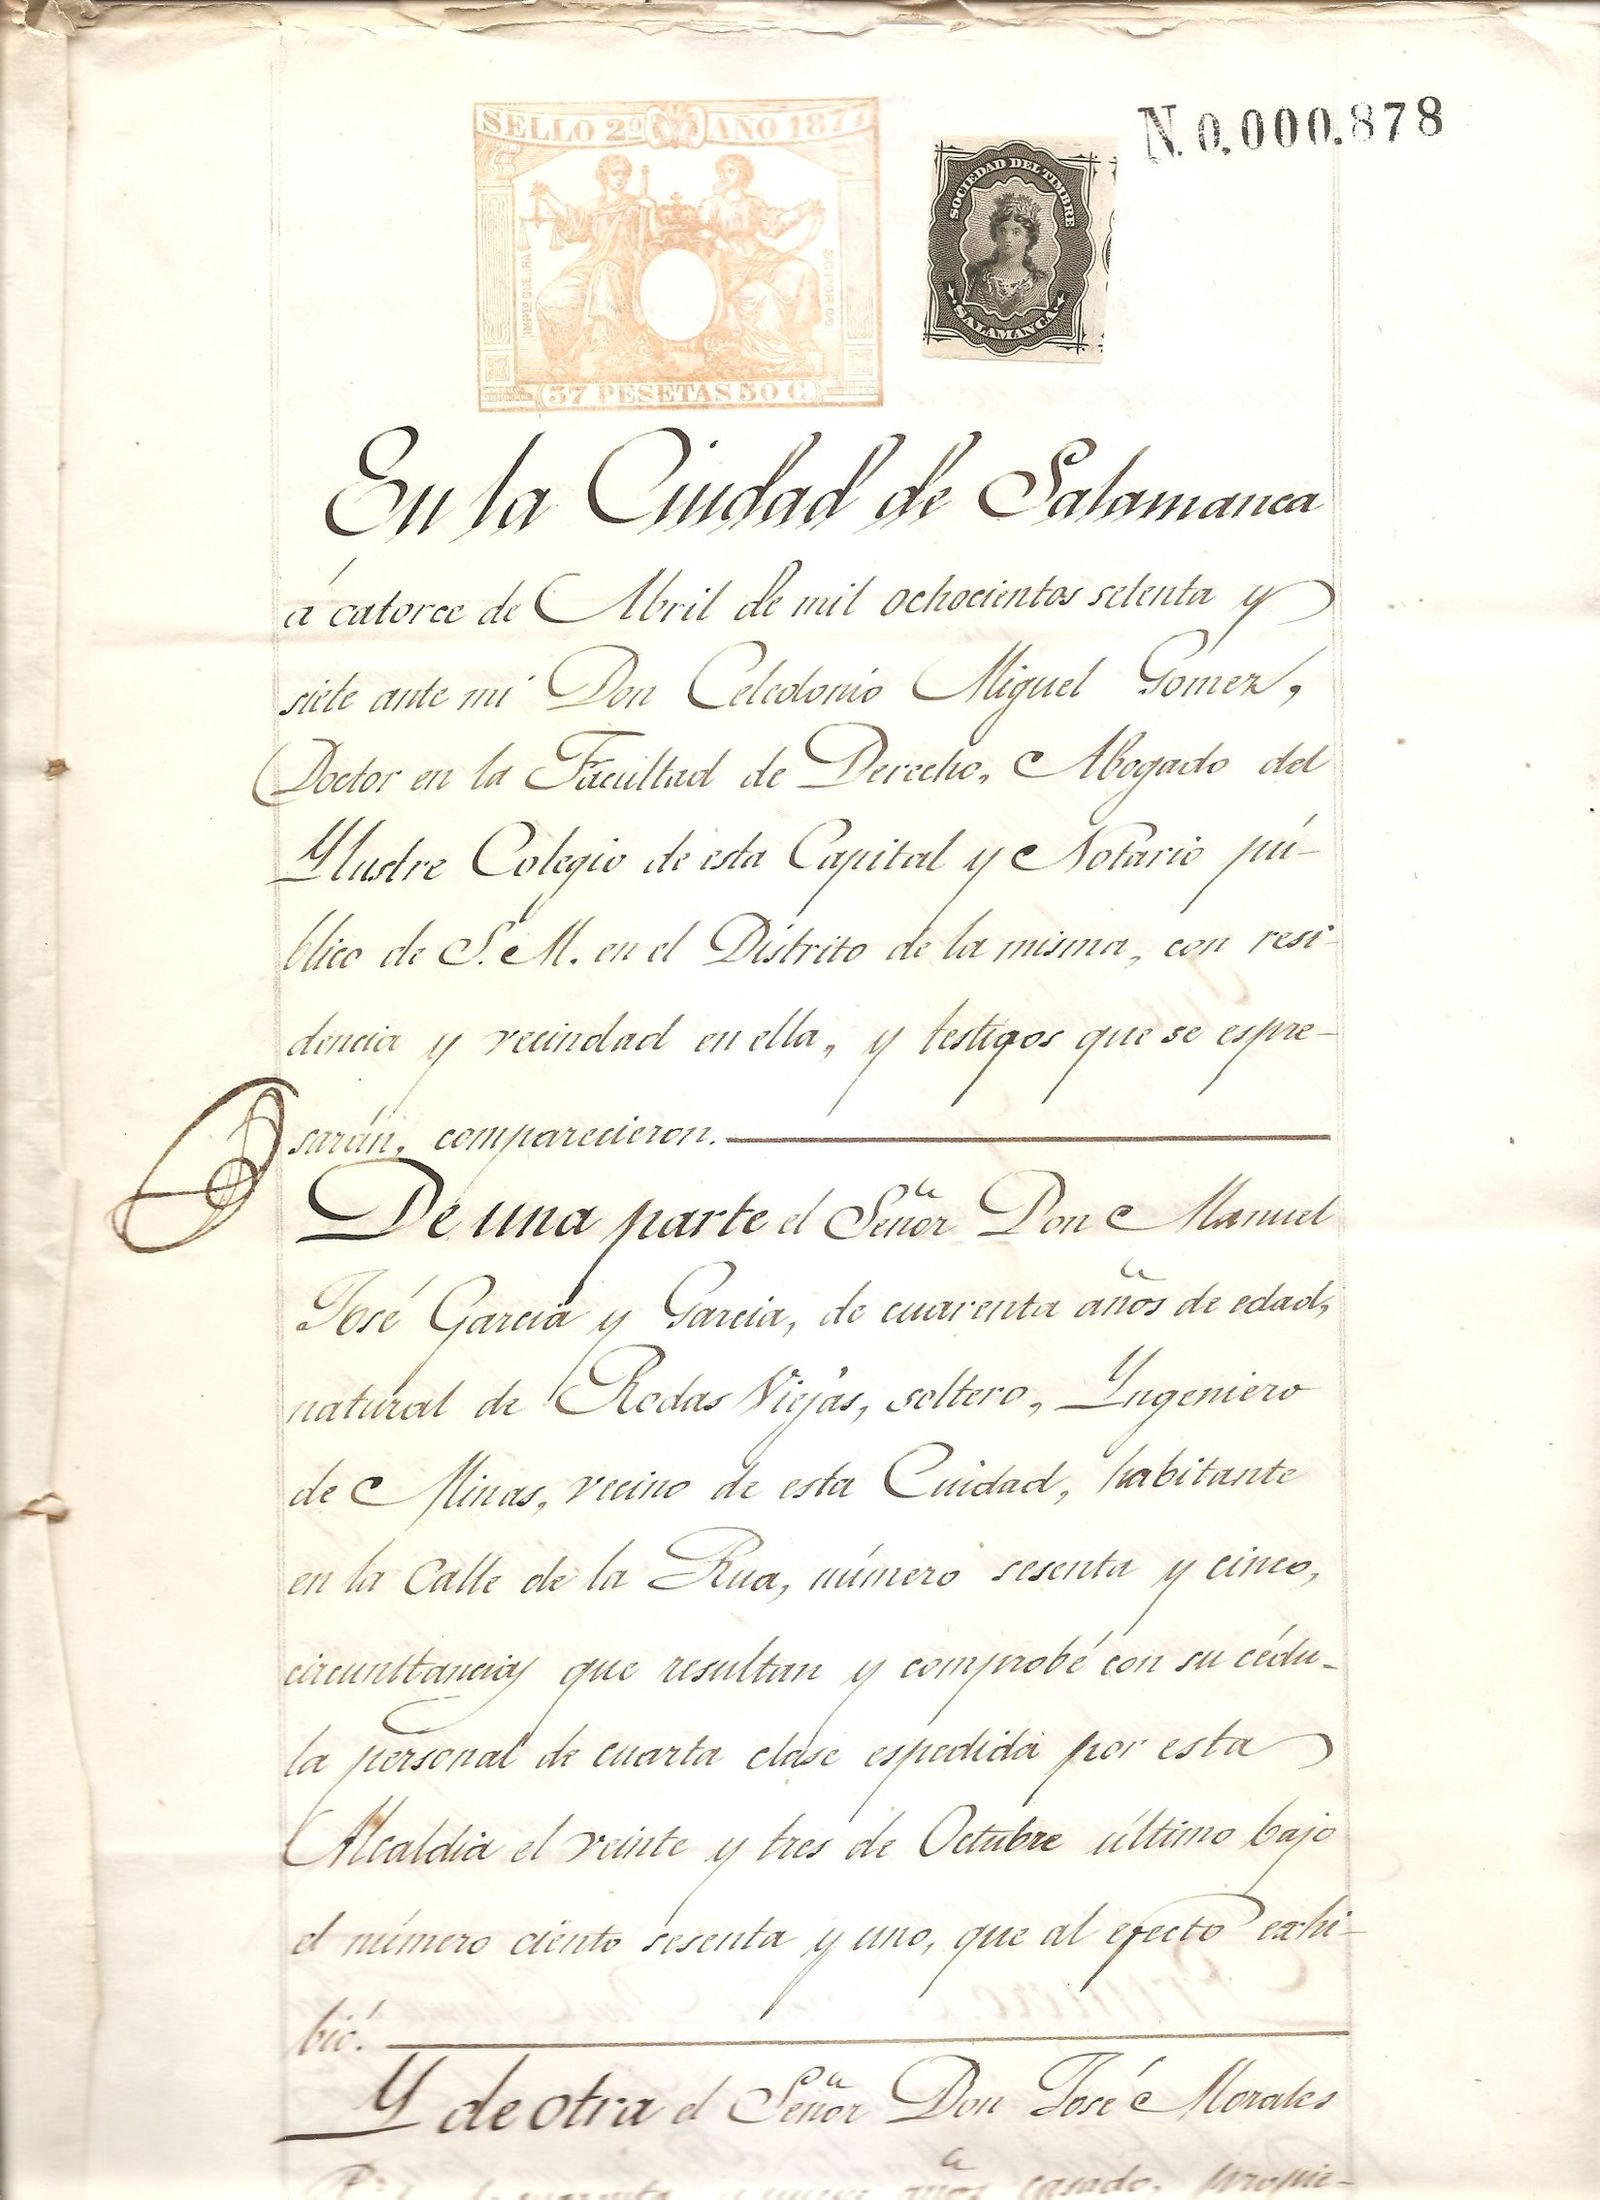 SELLO 2º AÑO 1877
37 PESETAS 50 C.
SOCIEDAD DEL TIMBRE
SALAMANCA
N. 0.000.878
En la Ciudad de Salamanca
á catorce de Abril de mil ochocientos setenta y
siete ante mi Don Celedonio Miguel Gomez,
Doctor en la Facultad de Derecho, Abogado del
Ylustre Colegio de esta Capital y Notario pú-
blico de S. M. en el Distrito de la misma, con resi-
dencia y vecindad en ella, y testigos que se espre-
sarán, comparecieron.
De una parte el Señor Don Manuel
José Garcia y Garcia, de cuarenta años de edad,
natural de Rodas Viejas, soltero, Yngeniero
de Minas, vecino de esta Ciudad, habitante
en la Calle de la Rua, número sesenta y cinco,
circunstancias que resultan y comprobé con su cédu-
la personal de cuarta clase espedida por esta
Alcaldia el veinte y tres de Octubre último bajo
el número ciento sesenta y uno, que al efecto exhi-
bió.
Y de otra el Señor Don José Morales
años casado, propie-